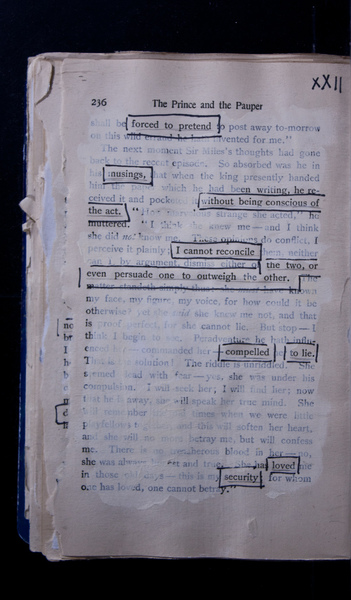 XXII
236 The Prince and the Pauper
shall be forced to pretend to post away to-morrow
on this wild errand he has invented for me."
The next moment Sir Miles's thoughts had gone
back to the recent episode. So absorbed was he in
his musings, that when the king presently handed
him the paper which he had been writing, he re-
ceived it and pocketed it without being conscious of
the act. strange she acted," he
muttered. "I think she knew me—and I think
she did not know me. These opinions do conflict, I
perceive it plainly; I cannot reconcile them, neither
can I, by argument, dismiss either of the two, or
even persuade one to outweigh the other. The
matter standeth simply thus: known
my face, my figure, my voice, for how could it be
otherwise? yet she said she knew me not, and that
is proof perfect, for she cannot lie. But stop—I
think I begin to see. Peradventure he hath influ-
enced her—commanded her—compelled to lie.
That is the solution! The riddle is unriddled. She
seemed dead with fear—yes, she was under his
compulsion. I will seek her; I will find her; now
that he is away, she will speak her true mind. She
will remember the old times when we were little
playfellows together, and this will soften her heart,
and she will no more betray me, but will confess
me. There is no treacherous blood in her—no,
she was always honest and true. She has loved me
in those old days—this is my security; for whom
one has loved, one cannot betray."